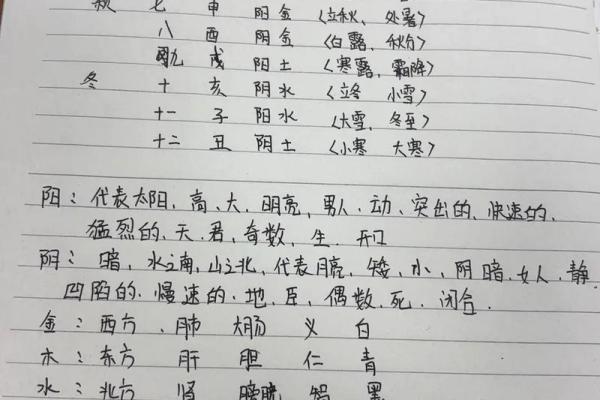 秋 七 申 阳金 〈立秋、处暑〉
八 酉 阴金 〈白露、秋分〉
九 戌 阳土 〈寒露、霜降〉
冬 十 亥 阴水 〈立冬 小雪〉
十一 子 阳水 〈大雪、冬至〉
十二 丑 阴土 〈小寒 大寒〉
阳：代表太阳、高、大、明亮、男人、动、突出的、快速的、
猛烈的、天、君、奇数、生、开口
阴：暗、水之南，山之北，代表月亮，矮、小、阴暗、女人、静
凹陷的、慢速的、地、臣、偶数、死、闭合.
金：西方、肺 大肠 义 白
木：东方 肝 胆 仁 青
水：北方 肾 膀胱 智 黑